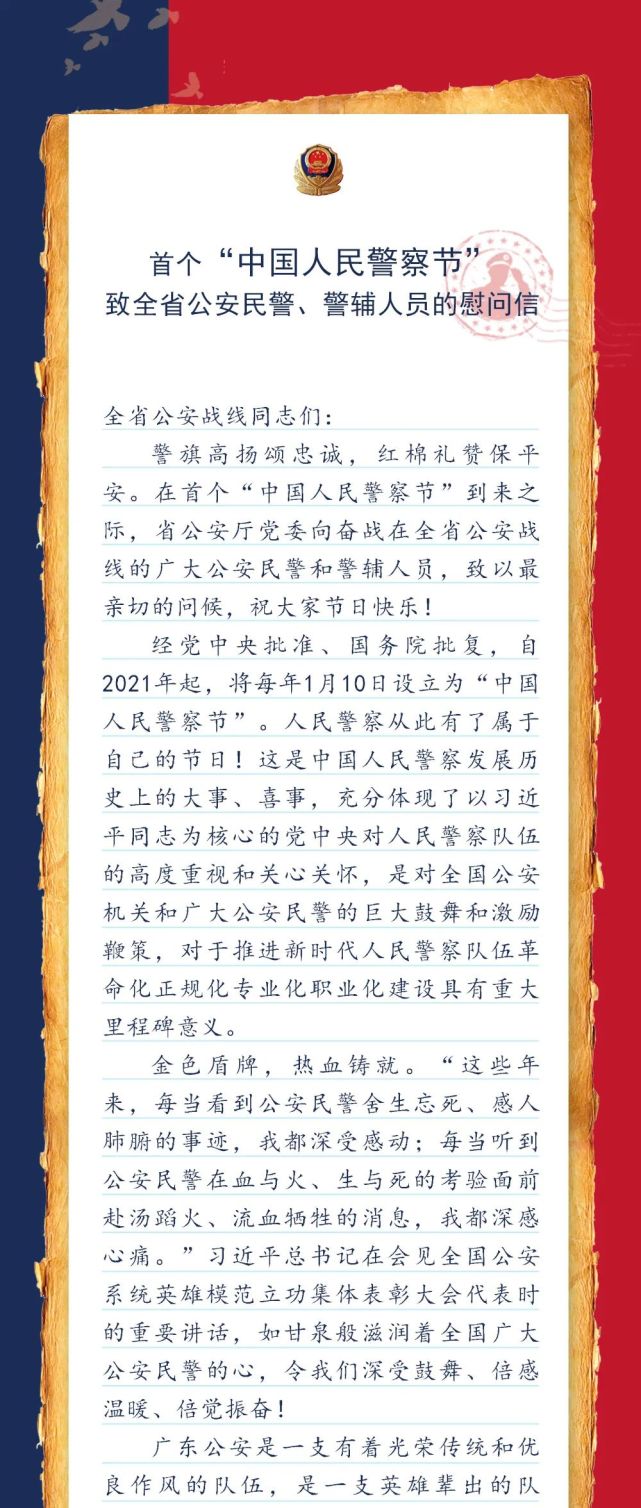 首个“中国人民警察节”
致全省公安民警、警辅人员的慰问信
全省公安战线同志们：
警旗高扬颂忠诚，红棉礼赞保平
安。在首个“中国人民警察节”到来之
际，省公安厅党委向奋战在全省公安战
线的广大公安民警和警辅人员，致以最
亲切的问候，祝大家节日快乐！
经党中央批准、国务院批复，自
2021年起，将每年1月10日设立为“中国
人民警察节”。人民警察从此有了属于
自己的节日！这是中国人民警察发展历
史上的大事、喜事，充分体现了以习近
平同志为核心的党中央对人民警察队伍
的高度重视和关心关怀，是对全国公安
机关和广大公安民警的巨大鼓舞和激励
鞭策，对于推进新时代人民警察队伍革
命化正规化专业化职业化建设具有重大
里程碑意义。
金色盾牌，热血铸就。“这些年
来，每当看到公安民警舍生忘死、感人
肺腑的事迹，我都深受感动；每当听到
公安民警在血与火、生与死的考验面前
赴汤蹈火、流血牺牲的消息，我都深感
心痛。”习近平总书记在会见全国公安
系统英雄模范立功集体表彰大会代表时
的重要讲话，如甘泉般滋润着全国广大
公安民警的心，令我们深受鼓舞、倍感
温暖、倍觉振奋！
广东公安是一支有着光荣传统和优
良作风的队伍，是一支英雄辈出的队